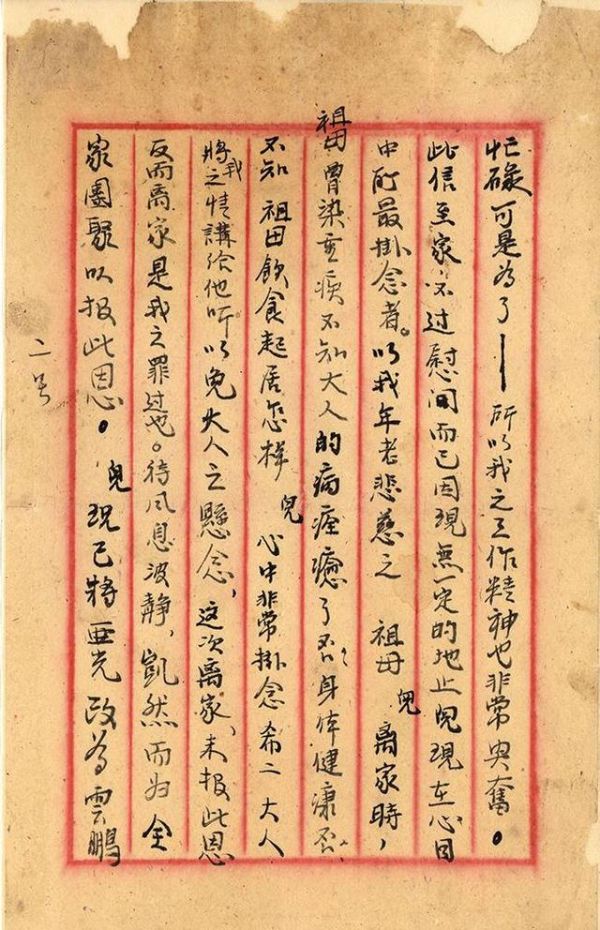 忙碌可是為了——所以我之工作精神也非常興奮。
此信至家不过慰问而已因現無一定的地止兒現在心目
中所最掛念者。以我年老悲慈之 祖母兒离家時，
祖母曾染重疾不知大人的病痊癒了否、身体健康否、
不知祖母飲食起居怎样兒心中非常掛念希二大人
將我之情講給他听以免大人之懸念、这次离家、未报此恩
反而离家是我之罪过也。待风息波静、凯然而归全
家團聚以报此恩。兒現已將亜光改為雲鵬
二号